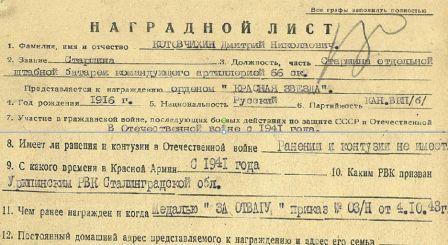 Все графы заполнить полностью
НАГРАДНОЙ ЛИСТ
1. Фамилия, имя и отчество КОТОВЧИХИН Дмитрий Николаевич.
2. Звание Старшина 3. Должность, часть Старшина отдельной
штабной батареи командующего артиллерией 66 ск.
Представляется к награждению орденом "КРАСНАЯ ЗВЕЗДА".
4. Год рождения 1916 г. 5. Национальность Русский 6. Партийность КАН.ВКП/б/
7. Участие в гражданской войне, последующих боевых действиях по защите СССР и Отечественной
В Отечественной войне с 1941 года.
8. Имеет ли ранения и контузии в Отечественной войне Ранений и контузии не имеет
9. С какого времени в Красной Армии с 1941 года 10. Каким РВК призван
Урюпинским РВК Сталинградской обл.
11. Чем ранее награжден и когда Медалью "ЗА ОТВАГУ" приказ № 03/Н от 4.10.43г
12. Постоянный домашний адрес представляемого к награждению и адрес его семьи